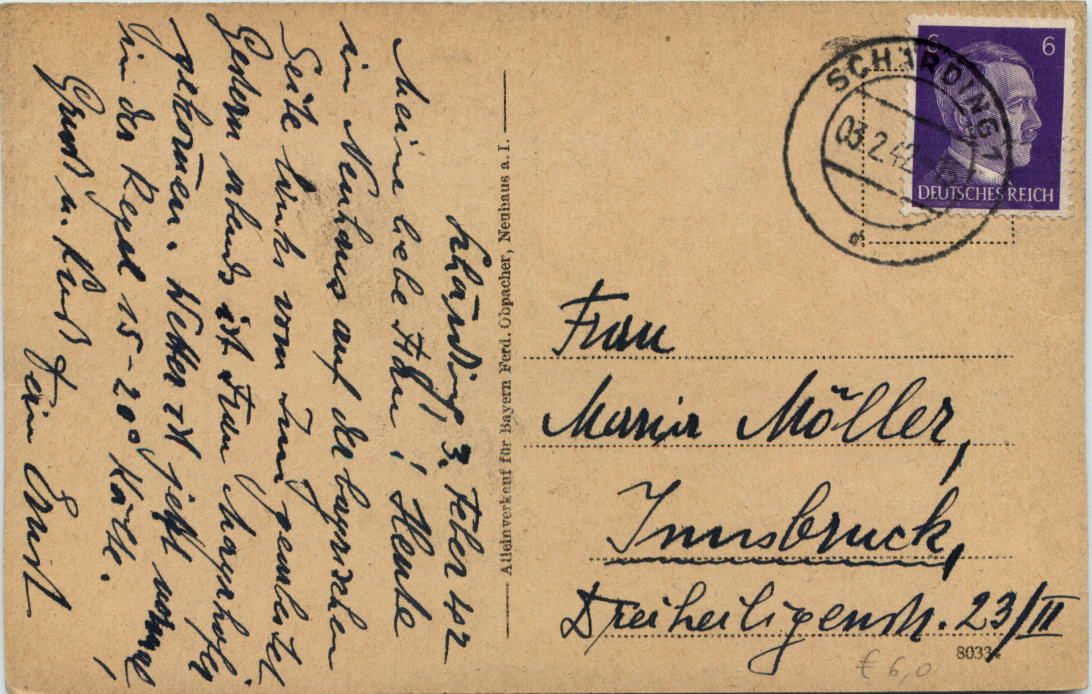 Schärding, 3. Feber 42
Meine liebe ! Heute
in Neuhaus auf der bayrischen
Seite links vom Inn
Gestern abends ist Frau Mayrhofer
gekommen. Wetter ist jetzt
in der Regel 15-20° Kälte.
Gruß u. Kuß Dein Ernst
Alleinverkauf für Bayern Ferd. Obpacher, Neuhaus a. I.
SCHÄRDING 1
03.2.42
6 6
DEUTSCHES REICH
Frau
Maria Möller,
Innsbruck,
Dreiheiligenstr. 23/II
€ 6,0